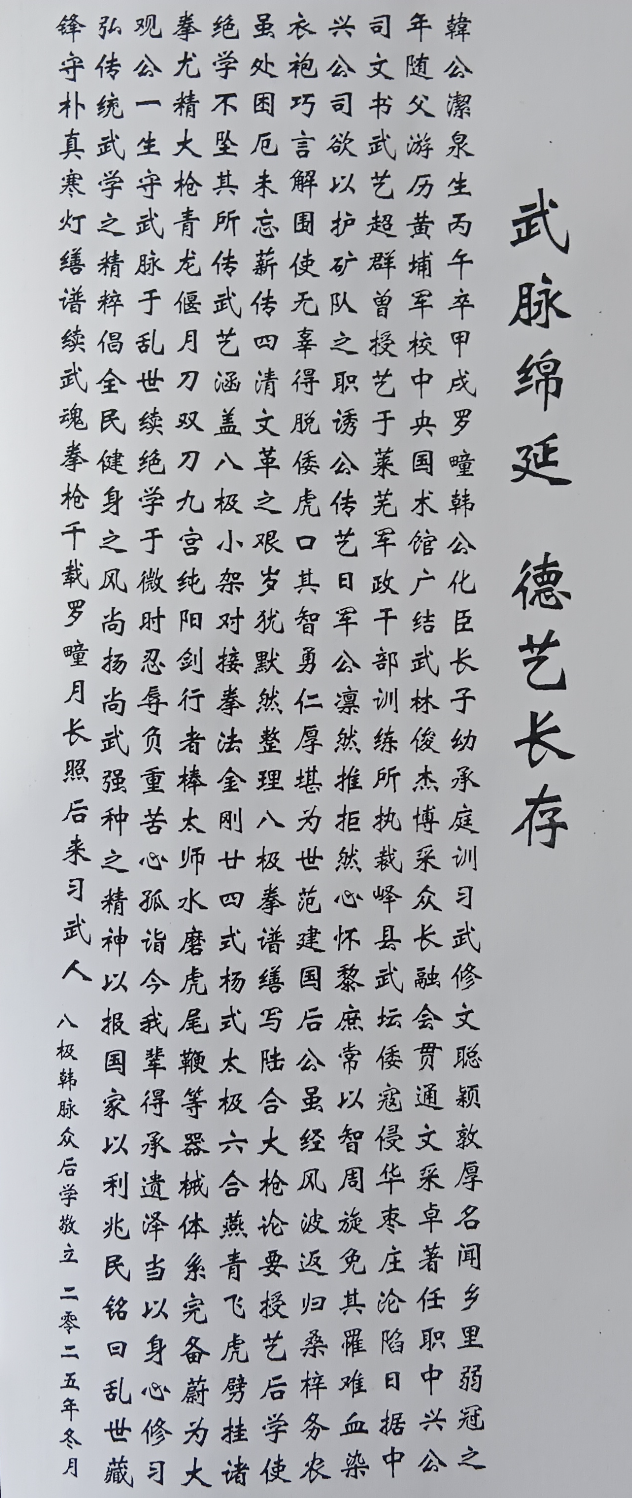 武脉绵延 德艺长存
韓公潔泉生丙午卒甲戌罗疃韩公化臣长子幼承庭训习武修文聪颖敦厚名闻乡里弱冠之
年随父游历黄埔军校中央国术馆广结武林俊杰博采众长融会贯通文采卓著任职中兴公
司文书武艺超群曾授艺于莱芜军政干部训练所执裁峄县武坛倭寇侵华枣庄沦陷日据中
兴公司欲以护矿队之职诱公传艺日军公凛然推拒然心怀黎庶常以智周旋免其罹难血染
衣袍巧言解围使无辜得脱倭虎口其智勇仁厚堪为世范建国后公虽经风波返归桑梓务农
虽处困厄未忘薪传四清文革之艰岁犹默然整理八极拳谱缮写陆合大枪论要授艺后学使
绝学不坠其所传武艺涵盖八极小架对接拳法金刚廿四式杨式太极六合燕青飞虎劈挂诸
拳尤精大枪青龙偃月刀双刀九宫纯阳剑行者棒太师水磨虎尾鞭等器械体系完备蔚为大
观公一生守武脉于乱世续绝学于微时忍辱负重苦心孤诣今我辈得承遗泽当以身心修习
弘传统武学之精粹倡全民健身之风尚扬尚武强种之精神以报国家以利兆民铭曰乱世藏
锋守朴真寒灯缮谱续武魂拳枪千载罗疃月长照后来习武人 八极韩脉众后学敬立 二零二五年冬月